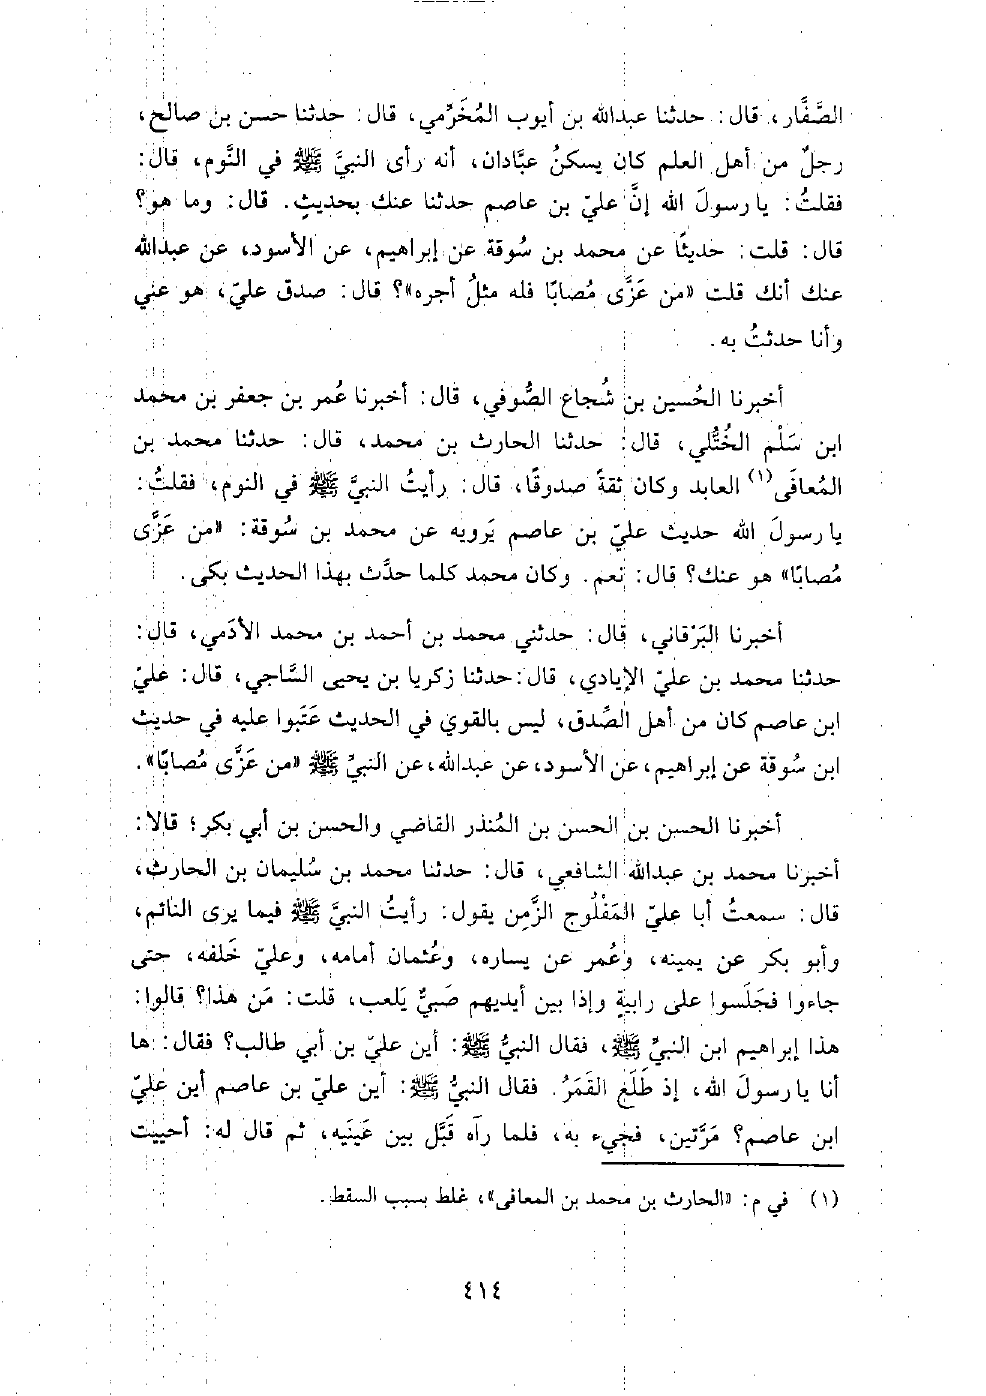 الصَّفَّار، قال: حدثنا عبدالله بن أيوب المُخَرِّمي، قال: حدثنا حسن بن صالح،
رجلٌ من أهل العلم كان يسكنُ عبَّادان، أنه رأى النبيَّ ﷺ في النَّوم، قال:
فقلتُ: يا رسولَ الله إنَّ عليّ بن عاصم حدثنا عنك بحديثٍ. قال: وما هو؟
قال: قلت: حديثًا عن محمد بن سُوقة عن إبراهيم، عن الأسود، عن عبدالله
عنك أنك قلت «من عَزَّى مُصابًا فله مثلُ أجره»؟ قال: صدق عليّ، هو عني
وأنا حدثتُ به.
أخبرنا الحُسين بن شُجاع الصُّوفي، قال: أخبرنا عُمر بن جعفر بن محمد
ابن سَلْم الخُتُّلي، قال: حدثنا الحارث بن محمد، قال: حدثنا محمد بن
المُعافَى(١) العابد وكان ثقةً صدوقًا، قال: رأيتُ النبيَّ ﷺ في النوم، فقلتُ:
يا رسولَ الله حديث عليّ بن عاصم يَرويه عن محمد بن سُوقة: «من عَزَّى
مُصابًا» هو عنك؟ قال: نعم. وكان محمد كلما حدَّث بهذا الحديث بكى.
أخبرنا البَرْقاني، قال: حدثني محمد بن أحمد بن محمد الأدَمي، قال:
حدثنا محمد بن عليّ الإيادي، قال: حدثنا زكريا بن يحيى السَّاجي، قال: عليّ
ابن عاصم كان من أهل الصِّدق، ليس بالقوي في الحديث عَتَبوا عليه في حديث
ابن سُوقة عن إبراهيم، عن الأسود، عن عبدالله، عن النبيِّ ﷺ «من عَزَّى مُصابًا».
أخبرنا الحسن بن الحسن بن المُنذر القاضي والحسن بن أبي بكر؛ قالا:
أخبرنا محمد بن عبدالله الشافعي، قال: حدثنا محمد بن سُليمان بن الحارث،
قال: سمعتُ أبا عليّ المَفْلُوج الزَّمِن يقول: رأيتُ النبيَّ ﷺ فيما يرى النائم،
وأبو بكر عن يمينه، وعُمر عن يساره، وعُثمان أمامه، وعليّ خَلفه، حتى
جاءوا فجَلَسوا على رابيةٍ وإذا بين أيديهم صَبيٌّ يَلعب، قلت: مَن هذا؟ قالوا:
هذا إبراهيم ابن النبيِّ ﷺ، فقال النبيُّ ﷺ: أين عليّ بن أبي طالب؟ فقال: ها
أنا يا رسولَ الله، إذ طَلَعَ القَمَرُ. فقال النبيُّ ﷺ: أين عليّ بن عاصم أين عليّ
ابن عاصم؟ مَرَّتين، فجيء به، فلما رآه قَبَّل بين عَينَيه، ثم قال له: أحييت
(١) في م: «الحارث بن محمد بن المعافى»، غلط بسبب السقط.
٤١٤